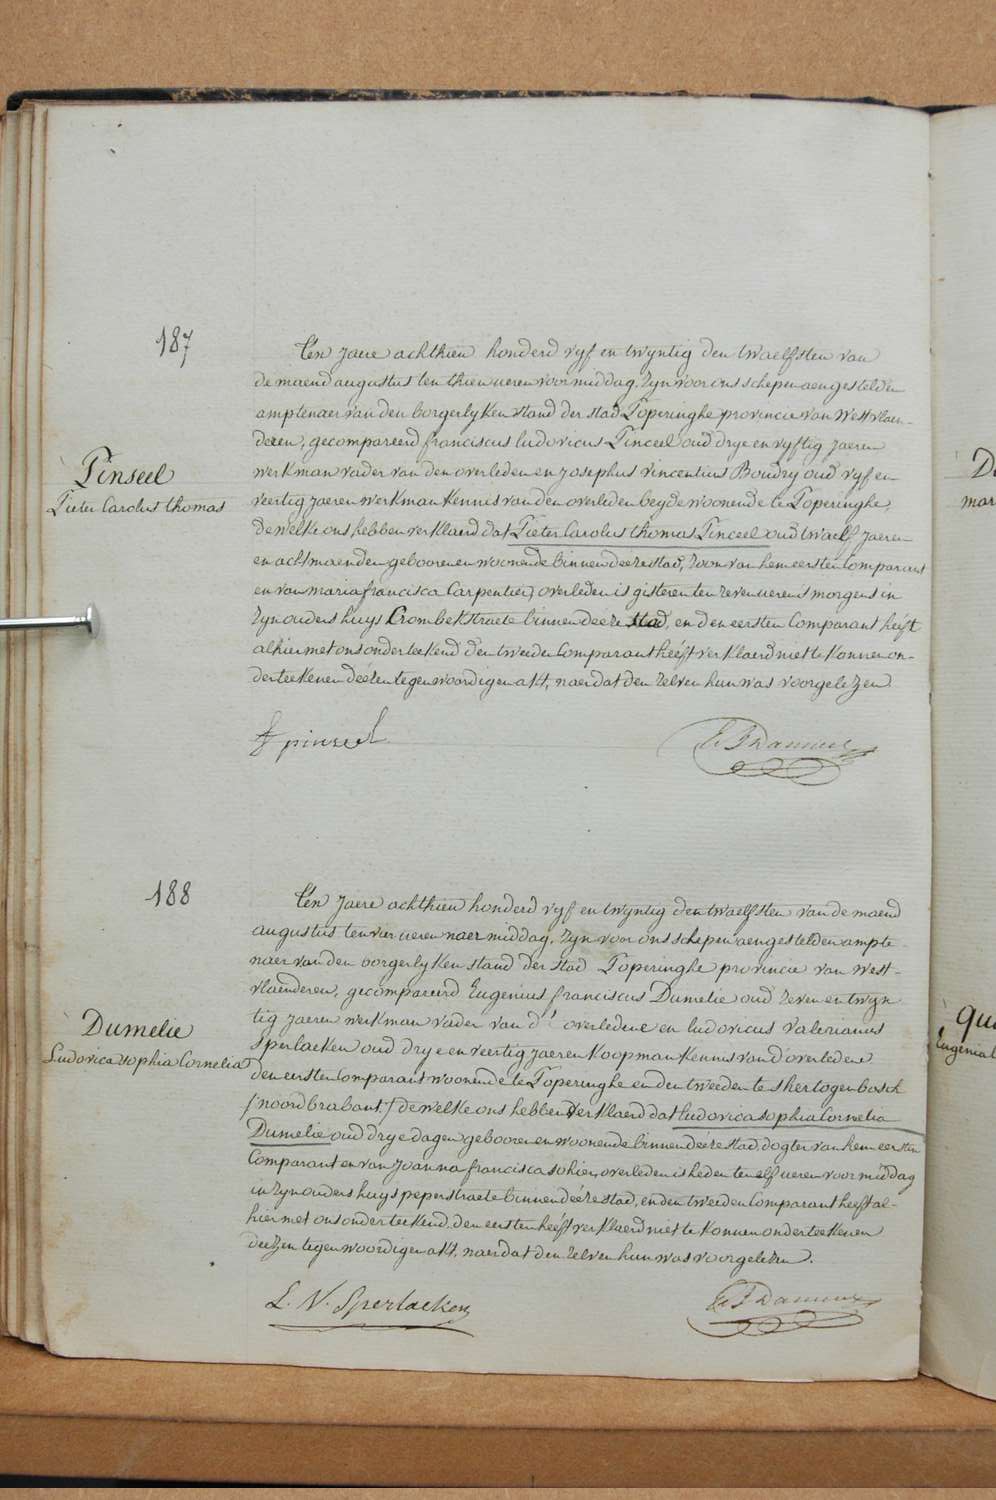 187
Ten jaere achthien honderd vyf en twyntig den twaelfsten van
de maend augustus ten thien ueren voormiddag, Zyn voor ons schepen aengestelden
amptenaer van den borgerlyken stand der stad Poperinghe provincie van Westvlaen-
deren, gecompareerd franciscus ludovicus Pinceel oud drye en vyftig jaeren
werkman vader van den overleden en josephus vincentius Boudry oud vyf en
veertig jaeren werkman kennis van den overleden beyde woonende te Poperinghe,
dewelke ons hebben verklaerd dat Pieter Carolus thomas Pinceel oud twaelf jaeren
en acht maenden gebooren en woonende binnen deéze stad, Zoon van hem eersten Comparant
en van maria francisca Carpentier, overleden is gisteren ten zeven ueren s morgens in
Zyn ouders huys Crombekstraete binnen deéze stad, en den eersten Comparant heéft
alhier met ons onderteekend den tweeden Comparant heéft verklaerd niet te konnen on-
derteekenen deézen tegenwoordigen akt, naer dat den zelven hun was voorgelezen
Pinseel
Pieter Carolus thomas
pinseel
188
Ten jaere achthien honderd vyf en twyntig den twaelfsten van de maend
augustus ten vier ueren naer middag, Zyn voor ons schepen aengestelden ampte-
naer van den borgerlyken stand der stad Poperinghe provincie van West-
vlaenderen, gecompareerd Eugenius franciscus Dumelie oud zeven en twyn
tig jaeren werkman vader van d' overledene en ludovicus valerianus
Sperlaeken oud drye en veertig jaeren Koopman Kennis van d'overledene
den eersten Comparant woonende te Poperinghe en den tweeden te shertogenbosch
/noordbrabant/ dewelke ons hebben verklaerd dat ludovica sophia Cornelia
Dumelie oud drye dagen gebooren en woonende binnen deéze stad, dogter van hem eersten
Comparant en van Joanna francisca sohier, overleden is heden ten elf ueren voormiddag
in Zyn ouders huys peperstraete binnen deéze stad, en den tweeden Comparant heeft al-
hier met ons onderteekend, den eersten heéft verklaerd niet te konnen onderteekenen
deezen tegenwoordigen akt, naer dat den zelven hun was voorgelezen.
Dumelie
Ludovica sophia Cornelia
L. V. Sperlaeken